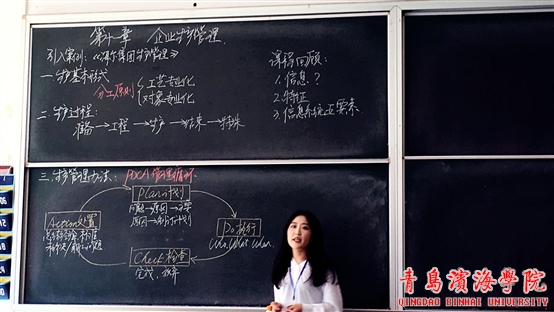 第十一章 企业生产管理
引入案例：《海尔集团生产管理》
一、生产基本形式
分工原则
工艺专业化
对象专业化
二、生产过程：
准备→工程→生产→结束→
课程回顾：
1.信息？
2.特征
3.信息系统五要素
三、生产管理办法：PDCA管理循环
Plan计划
问题→原因→主要
原因→制订计划
Action处置
Do执行
Who, What, When.
Check检查
完成，效率
青岛滨海学院
QINGDAO BINHAI UNIVERSITY